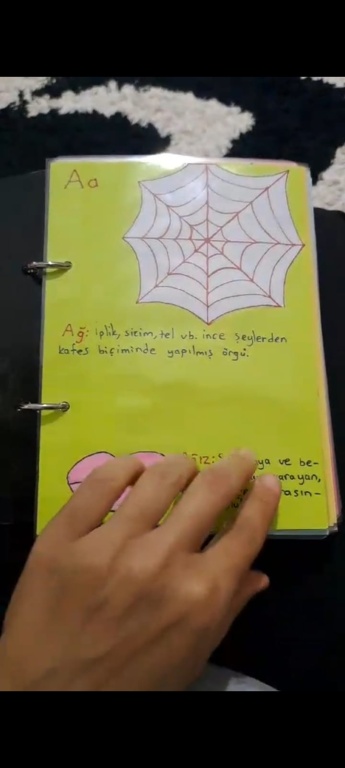 A a
Ağ: iplik, sicim, tel vb. ince şeylerden
kafes biçiminde yapılmış örgü.
ve be-
arayan,